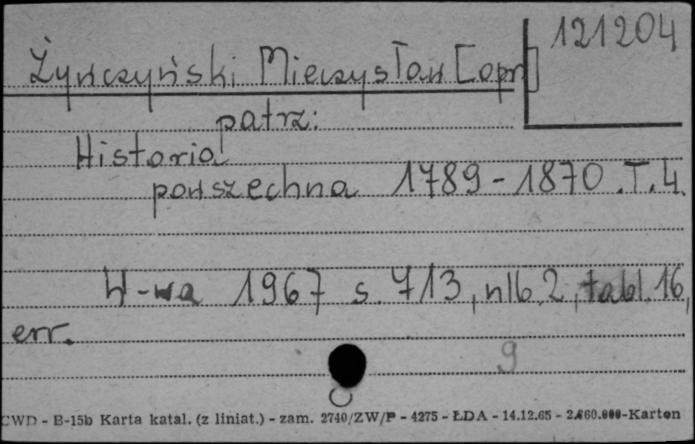 121204
Żywczyński Mieczysław [opr]
patrz:
Historia
powszechna 1789-1870. T. 4.
W-wa 1967 s. 713, nlb. 2, tabl. 16,
err.
9
CWD - B-15b Karta katal. (z liniat.) - zam. 2740/ZW/P - 4275 - ŁDA - 14.12.65 - 2.860.000-Karton